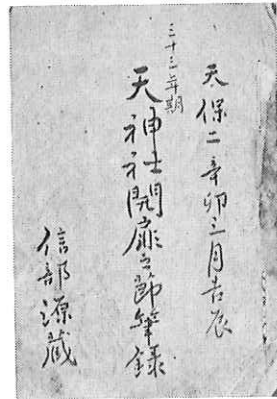 天保二辛卯三月吉辰
三十三年期
天神社開扉之節筆録
信部源蔵